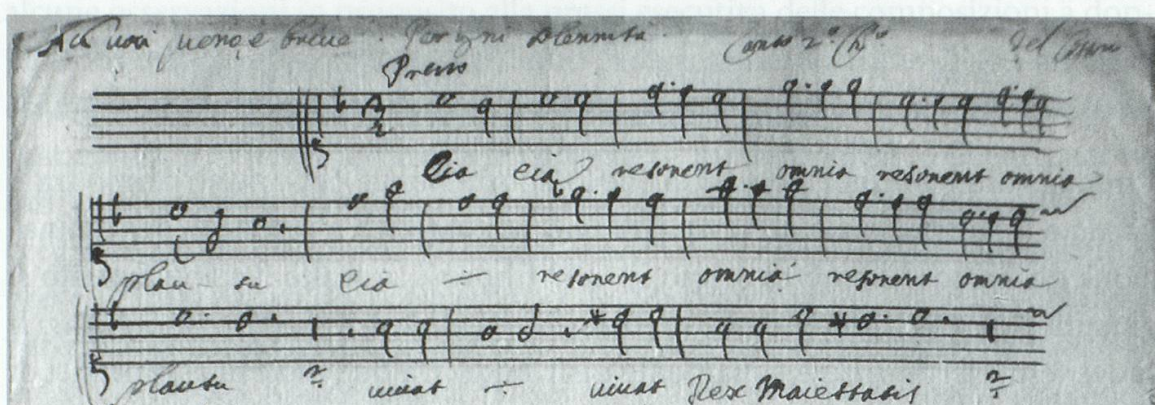 A 4 voci pieno, e breve. Per ogni Solennità. Canto 2º Chº del
Presto
Eia eia resonent omnia resonent omnia
plau - su eia — resonent omnia resonent omnia
plausu 2 vivat — vivat Rex Maiestatis 2